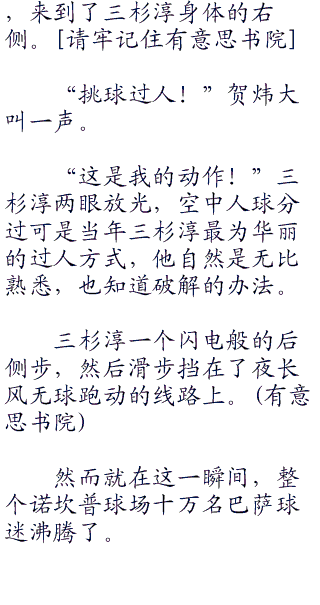 ，来到了三杉淳身体的右
侧。[请牢记住有意思书院]
“挑球过人！”贺炜大
叫一声。
“这是我的动作！”三
杉淳两眼放光，空中人球分
过可是当年三杉淳最为华丽
的过人方式，他自然是无比
熟悉，也知道破解的办法。
三杉淳一个闪电般的后
侧步，然后滑步挡在了夜长
风无球跑动的线路上。(有意
思书院)
然而就在这一瞬间，整
个诺坎普球场十万名巴萨球
迷沸腾了。